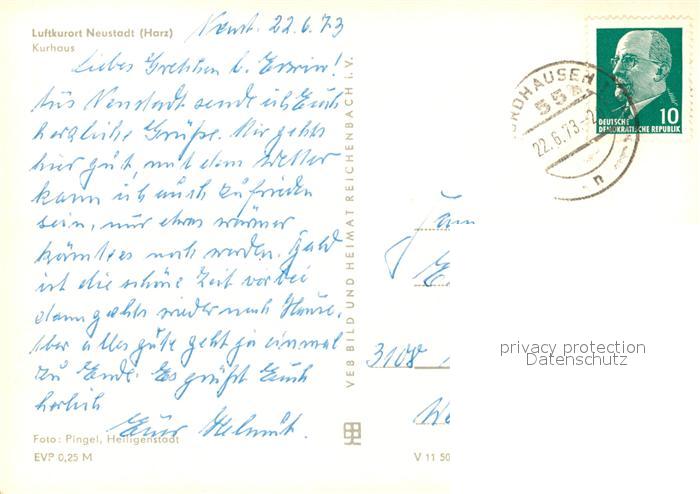 Luftkurort Neustadt (Harz)
Kurhaus
Neust. 22.6.73
Liebes Gretchen u. Erwin!
Aus Neustadt sende ich Euch
herzliche Grüße. Mir gehts
hier gut, mit dem Wetter
kann ich auch zufrieden
sein, nur etwas wärmer
könnte es noch werden. Bald
ist die schöne Zeit vorbei
dann gehts wieder nach Hause.
Aber alles gute geht ja einmal
zu Ende. Es grüßt Euch
herzlich
Euer Helmut.
Foto: Pingel, Heiligenstadt
EVP 0,25 M
VEB BILD UND HEIMAT REICHENBACH i. V.
V 11 50
NORDHAUSEN
55
22.6.73
n
DEUTSCHE
DEMOKRATISCHE REPUBLIK
10
Fam
E
3108
privacy protection
Datenschutz